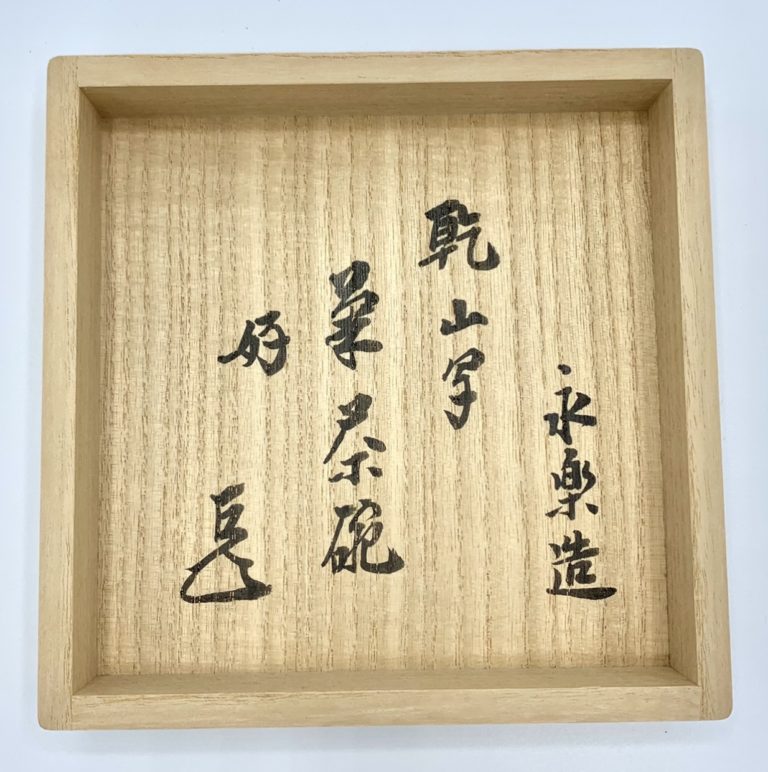 永楽造
乾山写
菊茶碗
好